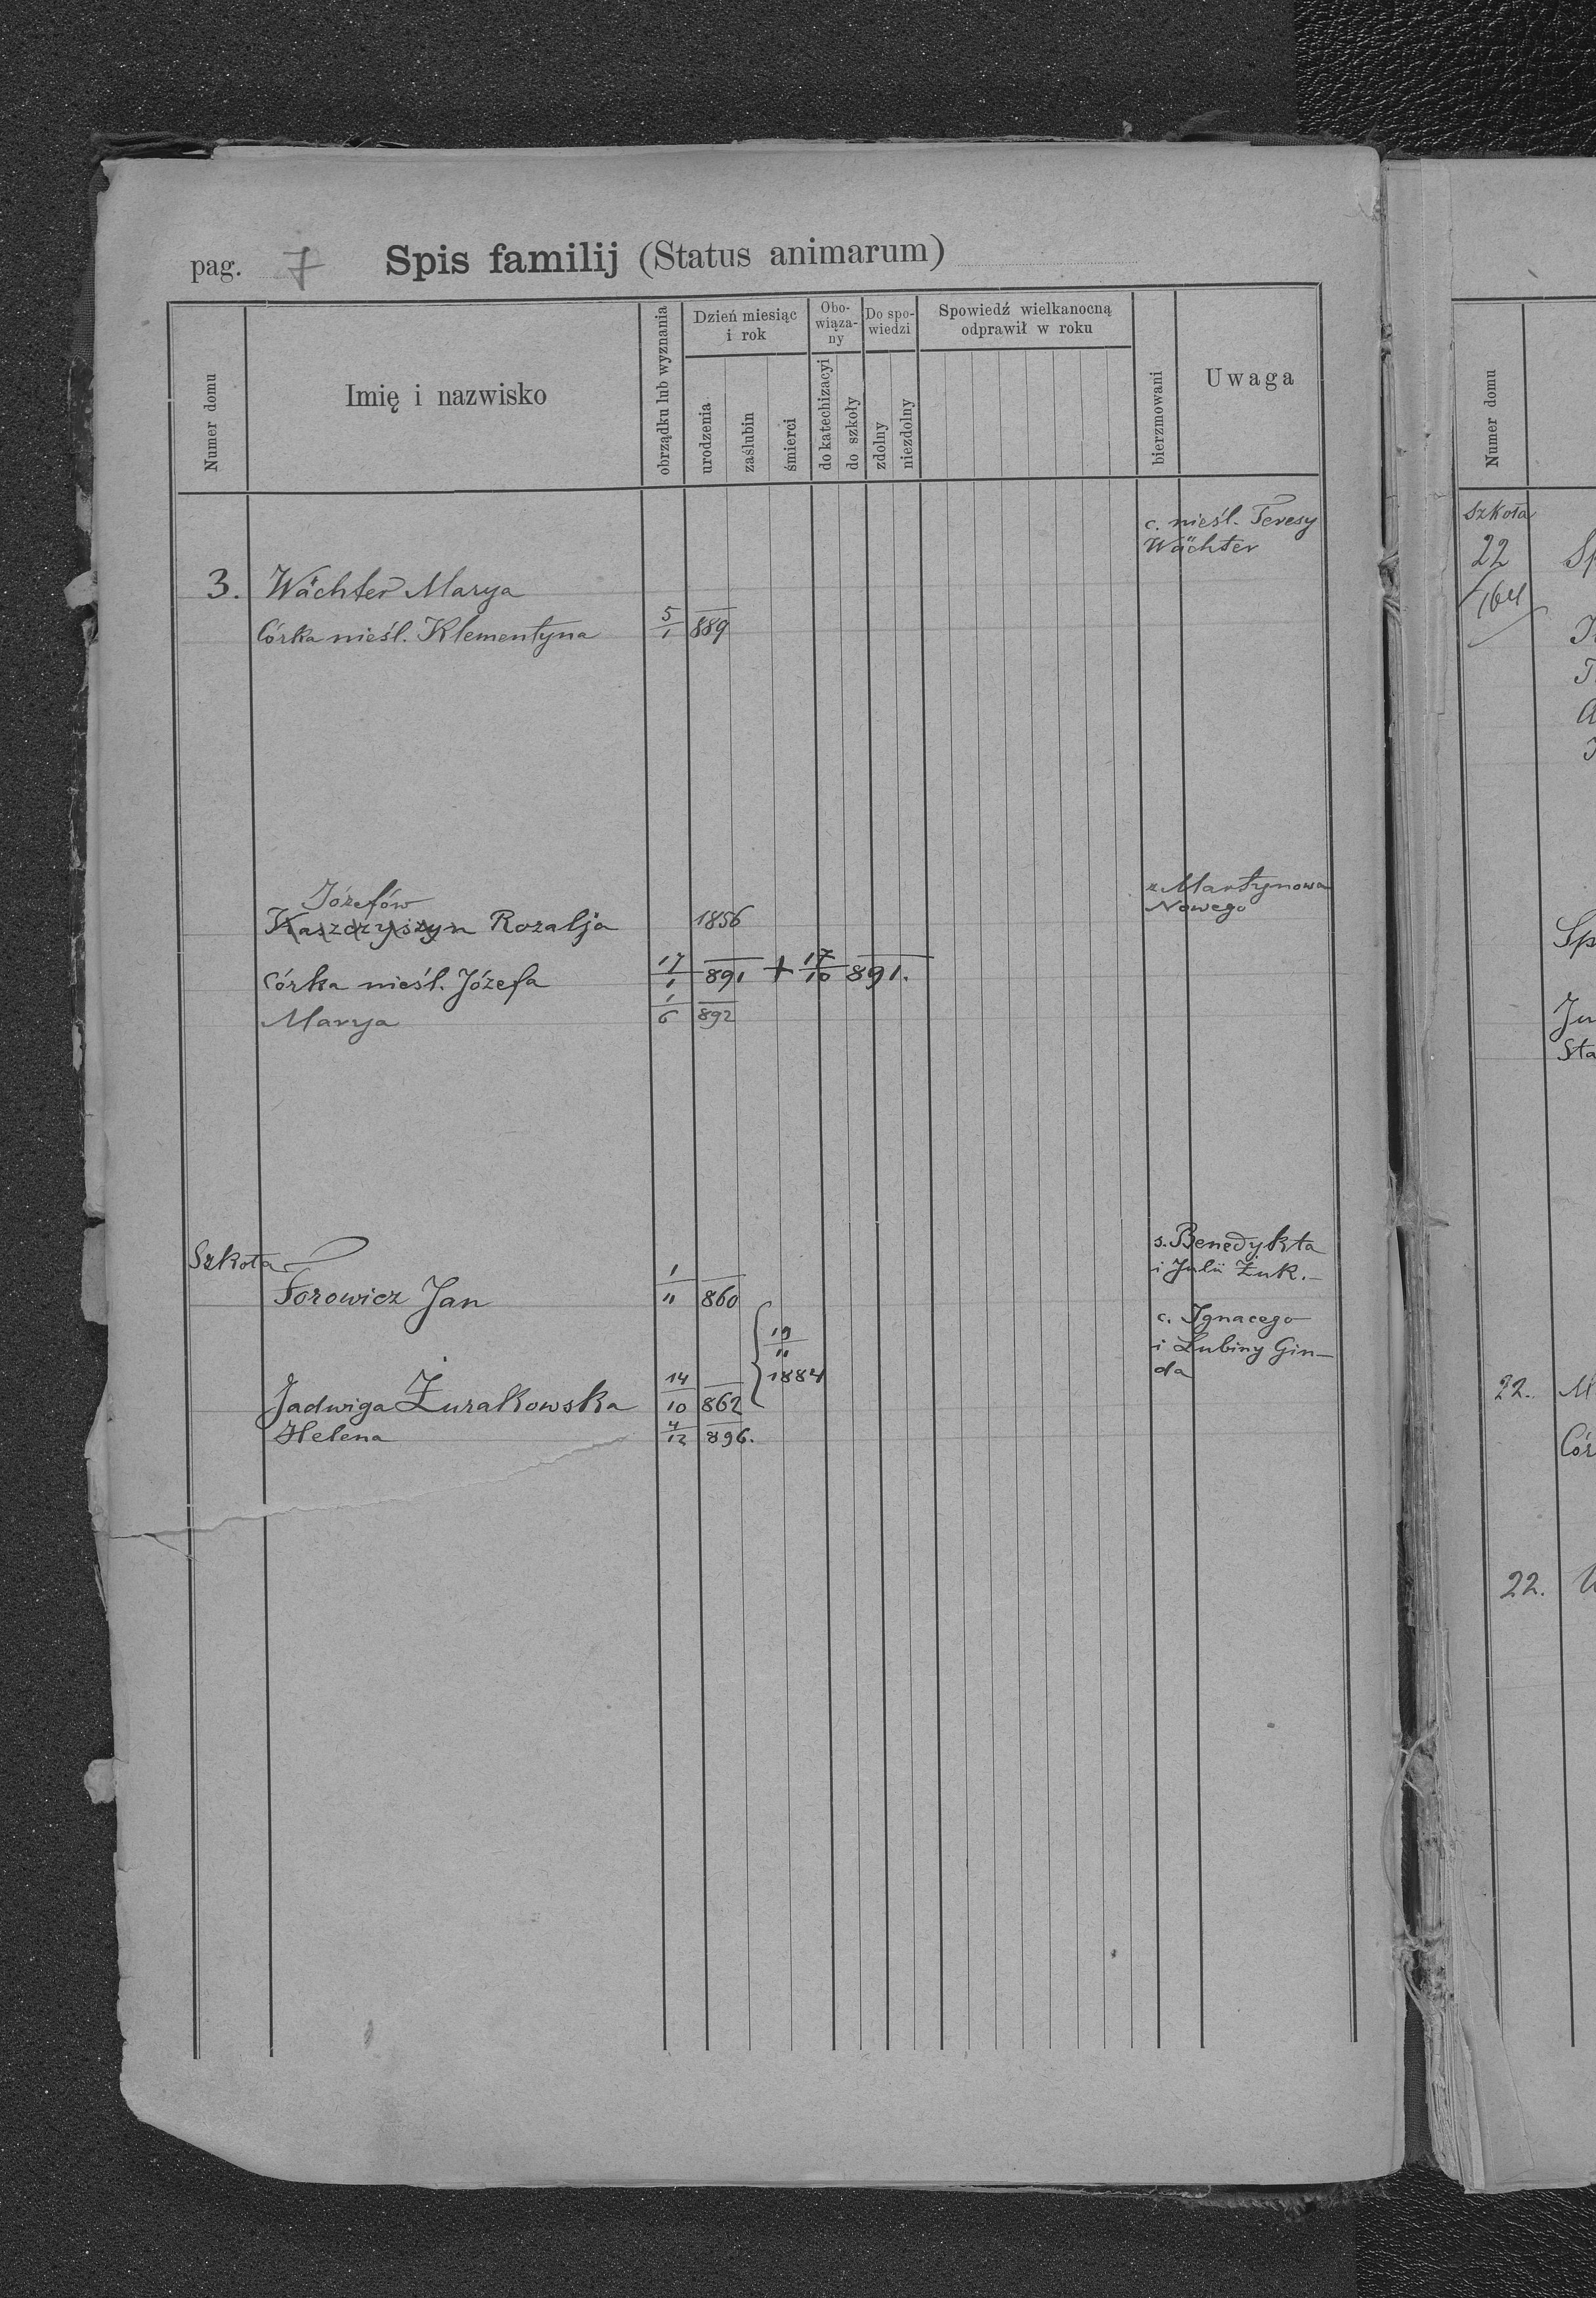 pag. 7 Spis familij (Status animarum)
Numer domu
Imię i nazwisko
obrządku lub wyznania
Dzień miesiąc
i rok
urodzenia
zaślubin
śmierci
Obo-
wiąza-
ny
do katechizacyi
do szkoły
Do spo-
wiedzi
zdolny
niezdolny
Spowiedź wielkanocną
odprawił w roku
bierzmowani
Uwaga
c. nieśl. Teresy
Wächter
3. Wächter Marya
Córka nieśl. Klementyna 5/1 889
Józefów
z Martynowa
Kaszczyszyn Rozalja 1856
Nowego
Córka nieśl. Józefa 17/1 891 + 17/10 891.
Marya 1/6 892
s. Benedykta
Szkoła
i Julii Żuk.
Torowicz Jan 1/11 860
c. Ignacego
19/11
i Lubiny Gin-
1884
da
Jadwiga Żurakowska 14/10 862
Helena 4/12 896.
Numer domu
Szkoła
22 Sp
164
Sp
Ju
Sta
22. M
Cór
22.